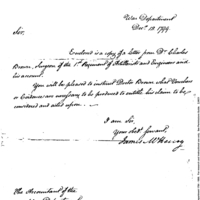 War Department
Decr. 18. 1799
Sir,
Enclosed is a copy of a letter from Dr. Charles
Brown, Surgeon of the 1st Regiment of Artillerists and Engineers and
his account.
You will be pleased to instruct Doctor Brown what Vouchers
or Evidence are necessary to be produced to entitle his claim to be
considered and acted upon.
I am Sir,
Your obdt. servant,
James McHenry
The Accountant of the